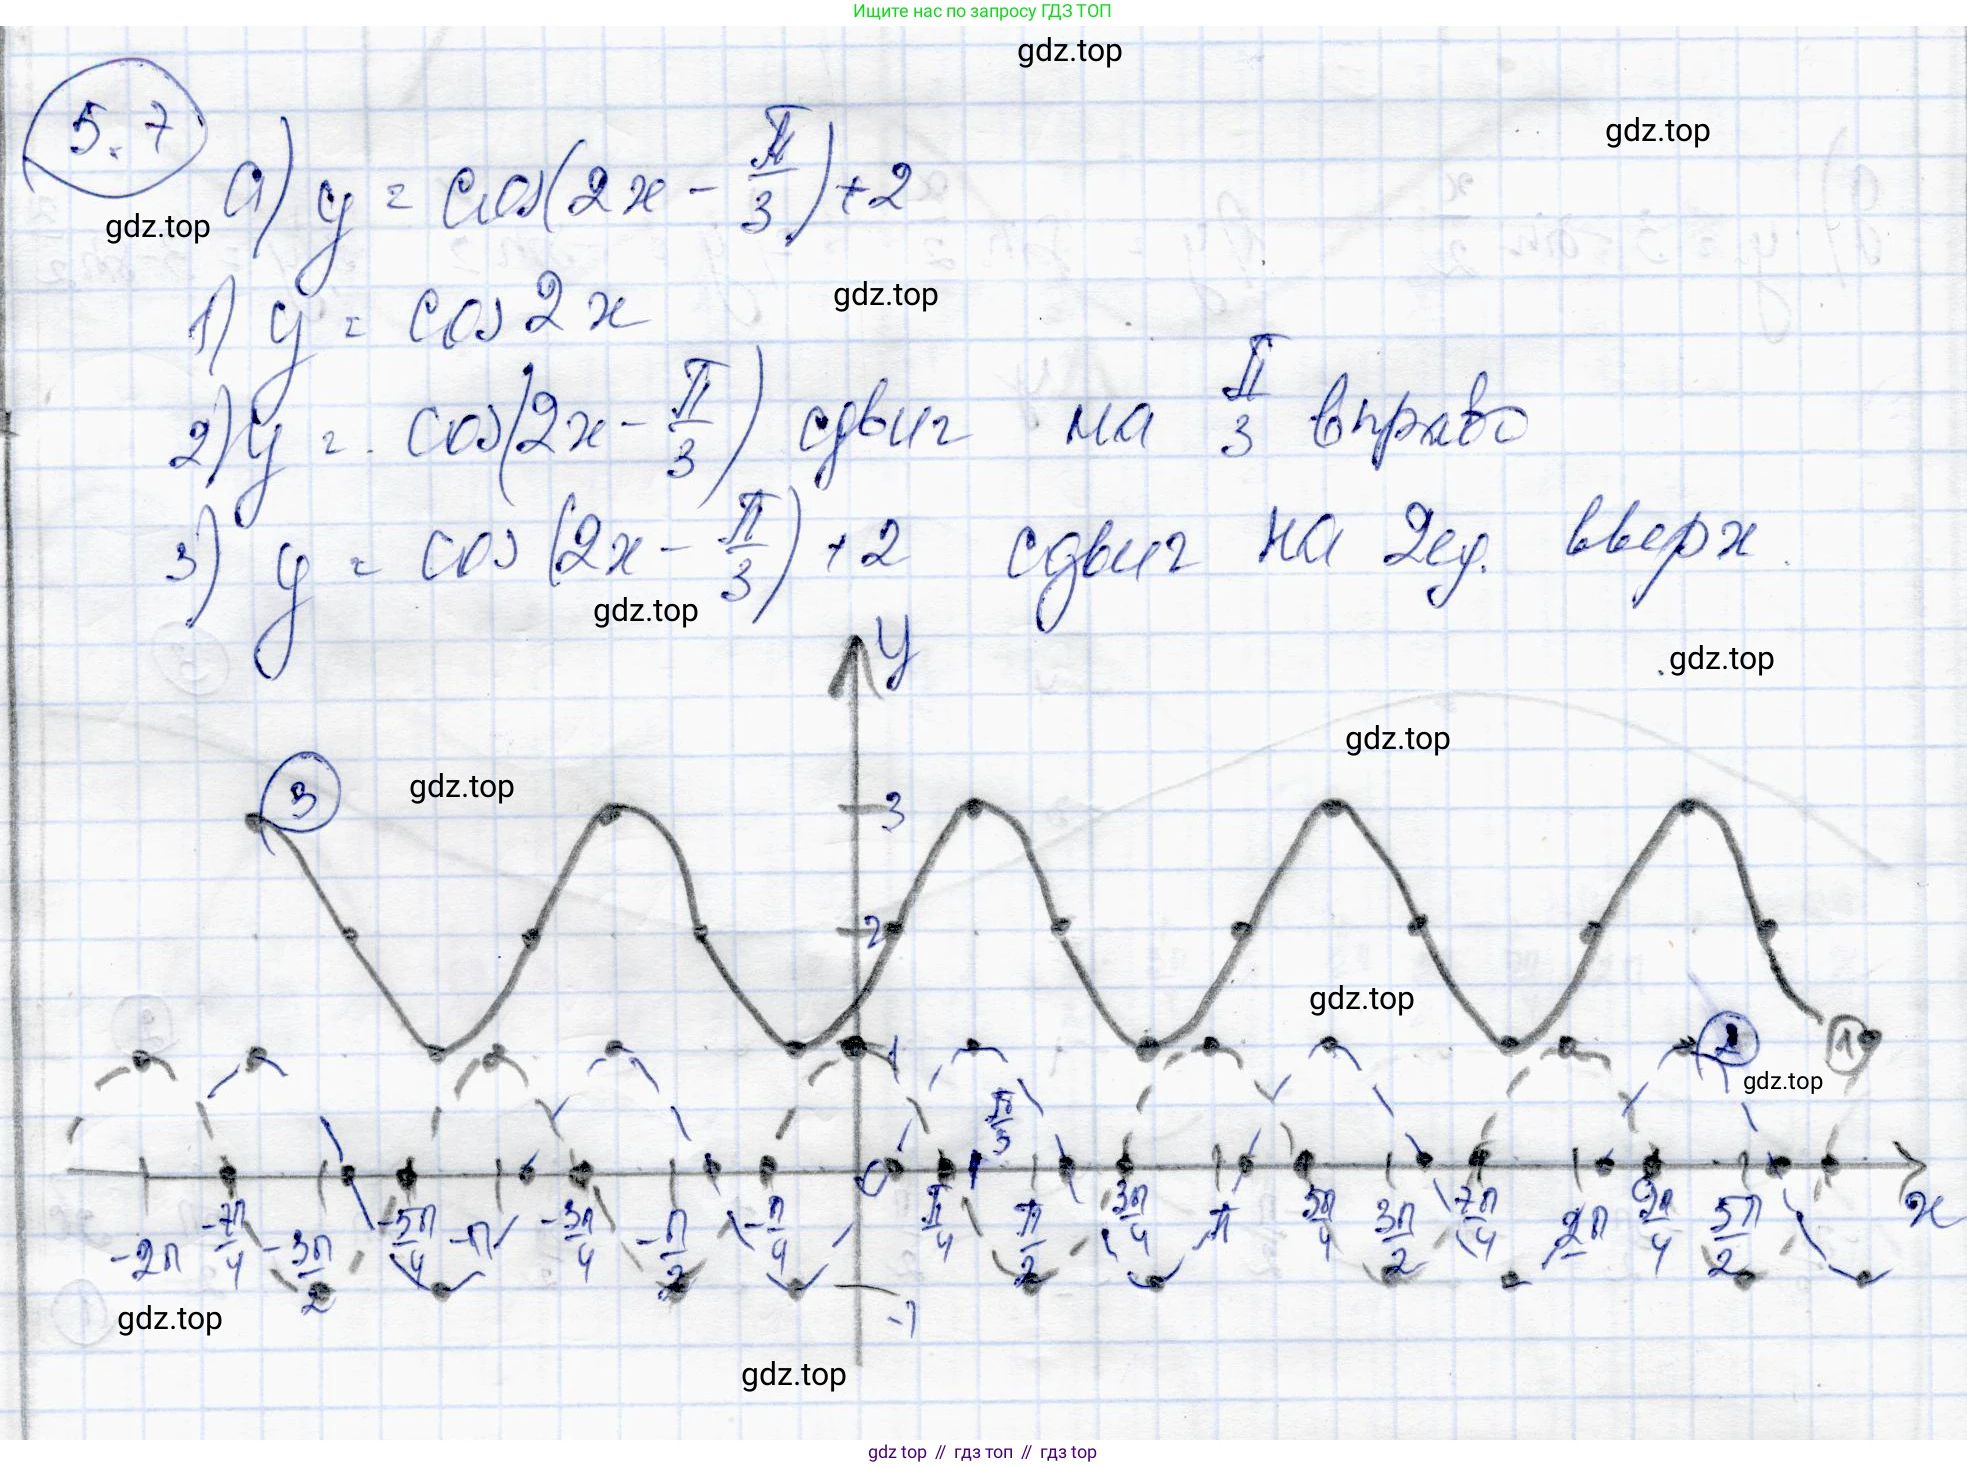 Ищите нас по запросу ГДЗ ТОП
gdz.top
5.7
gdz.top
а) y = cos(2x - π/3) + 2
gdz.top
1) y = cos 2x
gdz.top
2) y = cos(2x - π/3) сдвиг на π/3 вправо
3) y = cos(2x - π/3) + 2 сдвиг на 2ед. вверх
gdz.top
y
gdz.top
gdz.top
3
gdz.top
3
2
gdz.top
1
2
1
gdz.top
π/3
0
-2π -7π/4 -3π/2 -5π/4 -π -3π/4 -π/2 -π/4 π/4 π/2 3π/4 π 5π/4 3π/2 7π/4 2π 9π/4 5π/2 x
-1
gdz.top
gdz.top
gdz top // гдз топ // гдз top